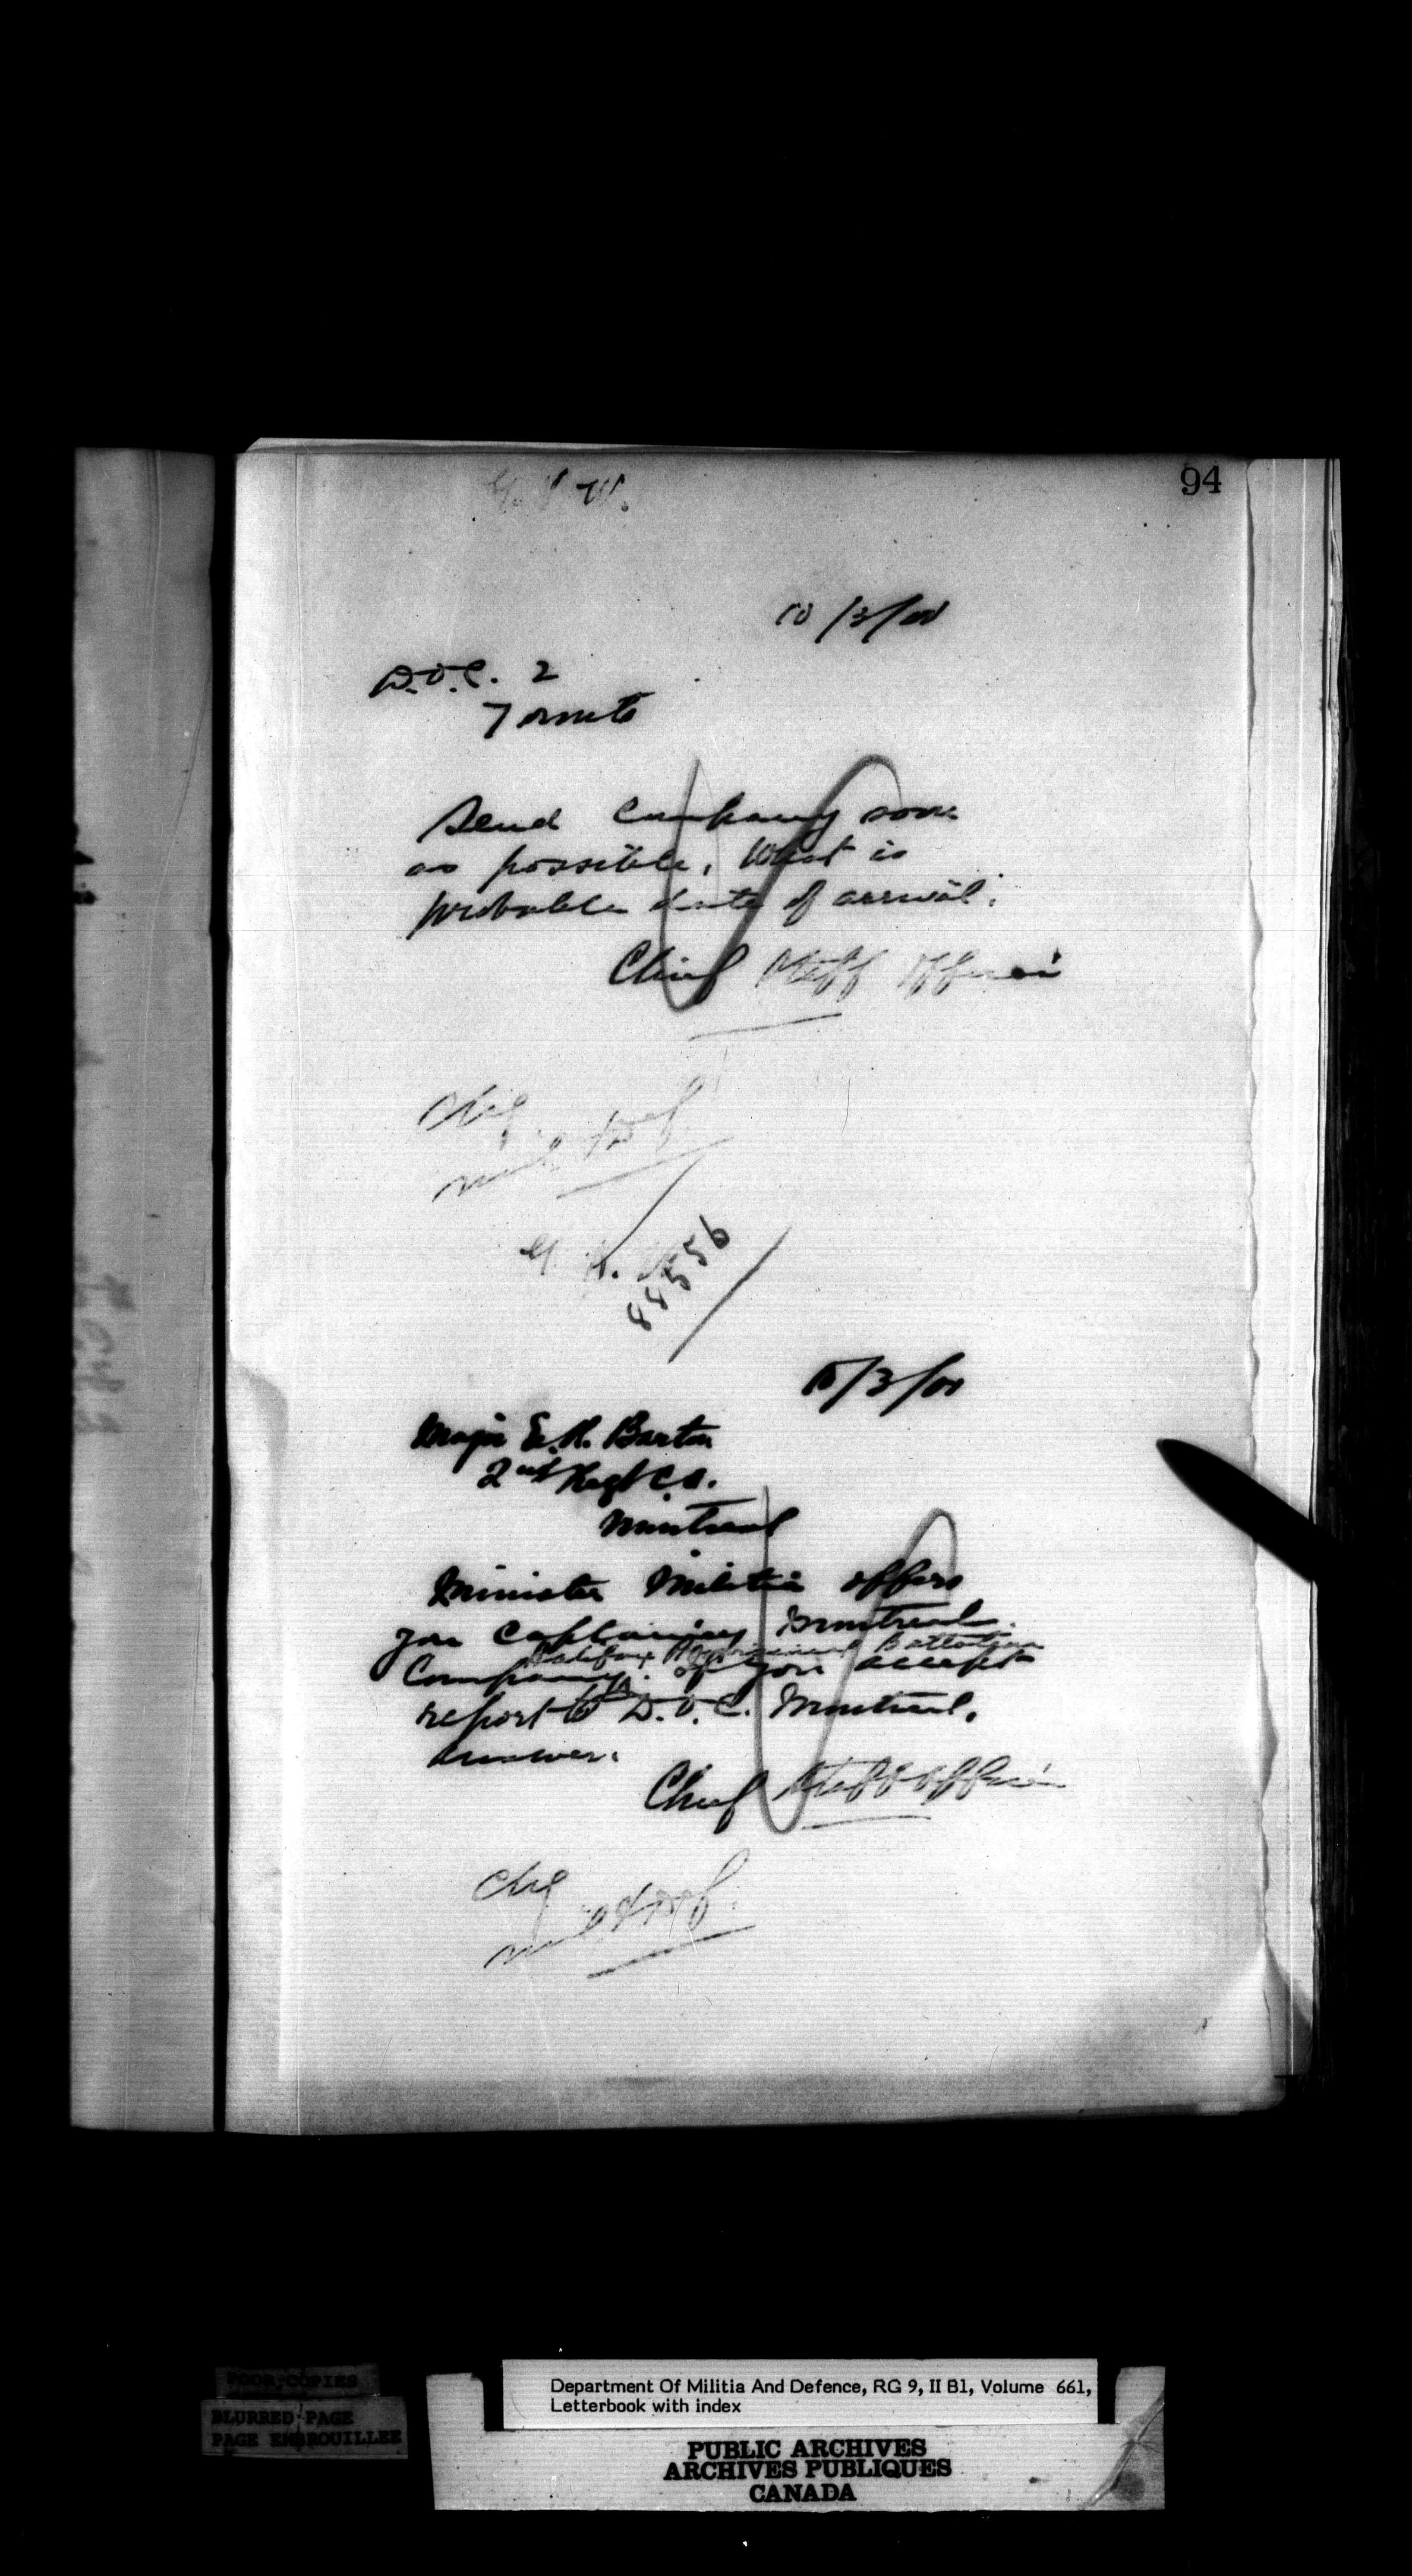 94
10/3/00
D.O.C. 2
Toronto
Send Company soon
as possible. What is
probable date of arrival.
Chief Staff Officer
Chg
Mil & Def.
88556
10/3/00
Major E. R. Barton
2nd Regt C.A.
Montreal
Minister Militia offers
you Captaincy Montreal
Halifax Battalion
Company. If you accept
report to D.O.C. Montreal.
Answer.
Chief Staff Officer
Chg
Mil & Def.
POOR COPIES
BLURRED PAGE
PAGE EMBROUILLEE
Department Of Militia And Defence, RG 9, II B1, Volume 661,
Letterbook with index
PUBLIC ARCHIVES
ARCHIVES PUBLIQUES
CANADA